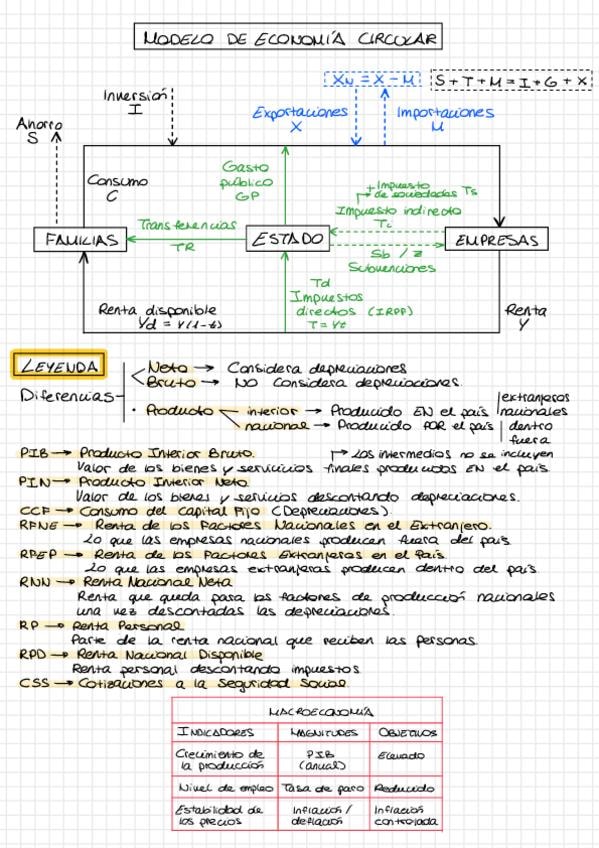 MODELO DE ECONOMÍA CIRCULAR
XN = X - M
S+T+M = I+G+X
Inversión
I
Exportaciones
X
Importaciones
M
Ahorro
S
Consumo
C
Gasto
público
GP
+ Impuesto
de sociedades Ts
Impuesto indirecto
Ti
Transferencias
TR
FAMILIAS
ESTADO
EMPRESAS
Sb / Z
Subvenciones
Td
Impuestos
directos (IRPF)
T = Yt
Renta disponible
Yd = Y(1-t)
Renta
Y
LEYENDA
Diferencias
Neto → Considera depreciaciones
Bruto → NO considera depreciaciones.
· Producto
interior → Producido EN el país
nacional → Producido POR el país
extranjeros
nacionales
dentro
fuera
PIB → Producto Interior Bruto.
→ Los intermedios no se incluyen
Valor de los bienes y servicios finales producidos EN el país
PIN → Producto Interior Neto
Valor de los bienes y servicios descontando depreciaciones.
CCF → Consumo del Capital Fijo (Depreciaciones)
RFNE → Renta de los Factores Nacionales en el Extranjero.
Lo que las empresas nacionales producen fuera del país
RFEP → Renta de los Factores Extranjeros en el País.
Lo que las empresas extranjeras producen dentro del país.
RNN → Renta Nacional Neta
Renta que queda para los factores de producción nacionales
una vez descontadas las depreciaciones.
RP → Renta Personal
Parte de la renta nacional que reciben las personas.
RPD → Renta Nacional Disponible
Renta personal descontando impuestos
CSS → Cotizaciones a la Seguridad Social.
MACROECONOMÍA
INDICADORES MAGNITUDES OBJETIVOS
Crecimiento de
la producción
PIB
(anual)
Elevado
Nivel de empleo Tasa de paro Reducido
Estabilidad de
los precios
Inflación /
deflación
Inflación
controlada